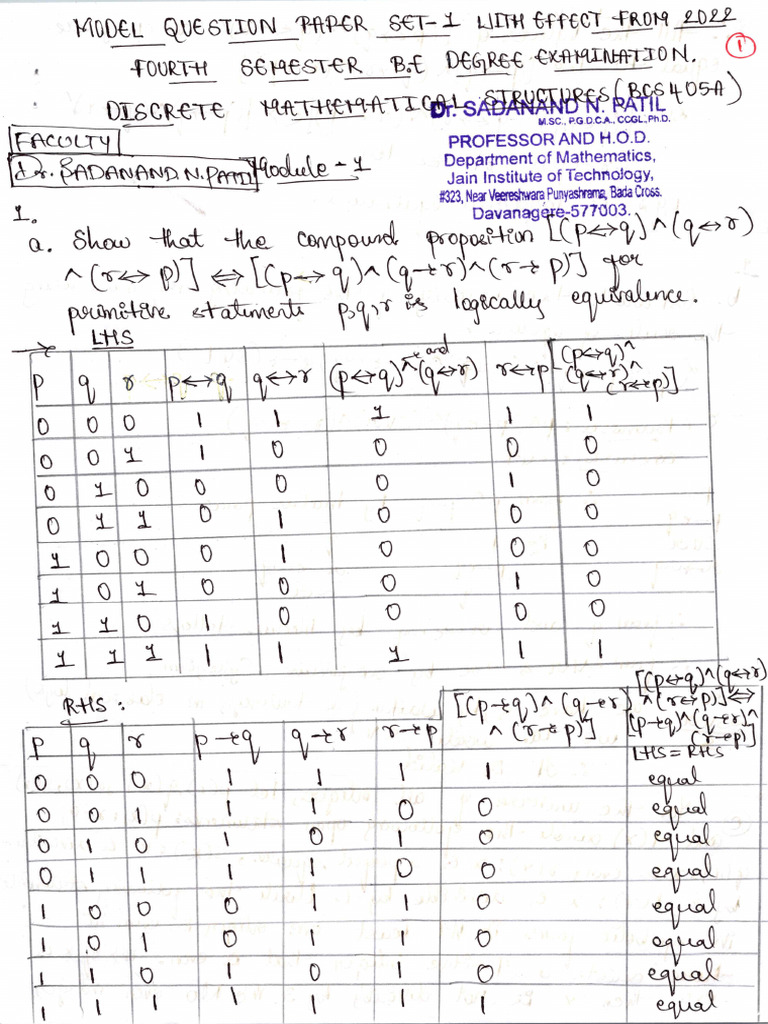 MODEL QUESTION PAPER SET-1 WITH EFFECT FROM 2022
1
FOURTH SEMESTER B.E DEGREE EXAMINATION.
DISCRETE MATHEMATICAL STRUCTURES (BCS405A)
Dr. SADANAND N. PATIL
M.SC., P.G.D.C.A., CCGL., Ph.D.
PROFESSOR AND H.O.D.
Department of Mathematics,
Jain Institute of Technology,
#323, Near Veereshwara Punyashrama, Bada Cross.
Davanagere-577003.
FACULTY
Dr. SADANAND.N.PATIL Module - 1
1.
a. Show that the compound proposition [(p↔q)∧(q↔r)
∧(r↔p)] ⇔ [(p→q)∧(q→r)∧(r→p)] for
primitive statements p,q,r is logically equivalence.
→ LHS
p q r p↔q q↔r (p↔q)∧(q↔r) r↔p [(p↔q)∧(q↔r)∧(r↔p)]
0 0 0 1 1 1 1 1
0 0 1 1 0 0 0 0
0 1 0 0 0 0 1 0
0 1 1 0 1 0 0 0
1 0 0 0 1 0 0 0
1 0 1 0 0 0 1 0
1 1 0 1 0 0 0 0
1 1 1 1 1 1 1 1
RHS :
p q r p→q q→r r→p [(p→q)∧(q→r)∧(r→p)] [(p↔q)∧(q↔r)∧(r↔p)]⇔[(p→q)∧(q→r)∧(r→p)] LHS = RHS
0 0 0 1 1 1 1 equal
0 0 1 1 1 0 0 equal
0 1 0 1 0 1 0 equal
0 1 1 1 1 0 0 equal
1 0 0 0 1 1 0 equal
1 0 1 0 1 1 0 equal
1 1 0 1 0 1 0 equal
1 1 1 1 1 1 1 equal